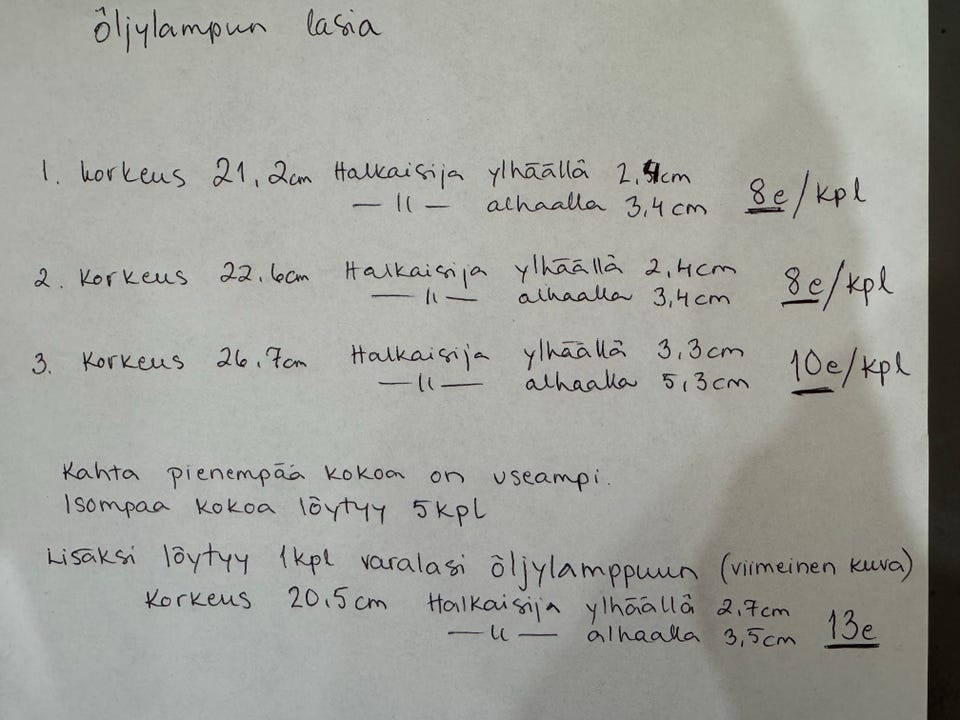 öljylampun lasia
1. korkeus 21,2cm Halkaisija ylhäällä 2,4cm
— 11 — alhaalla 3,4 cm 8e/kpl
2. Korkeus 22.6cm Halkaisija ylhäällä 2,4cm
— 11 — alhaalla 3,4cm 8e/kpl
3. Korkeus 26.7cm Halkaisija ylhäällä 3,3cm
— 11 — alhaalla 5,3cm 10e/kpl
Kahta pienempää kokoa on useampi.
Isompaa kokoa löytyy 5kpl
Lisäksi löytyy 1kpl varalasi öljylamppuun (viimeinen kuva)
Korkeus 20.5cm Halkaisija ylhäällä 2,7cm
— 11 — alhaalla 3,5cm 13e